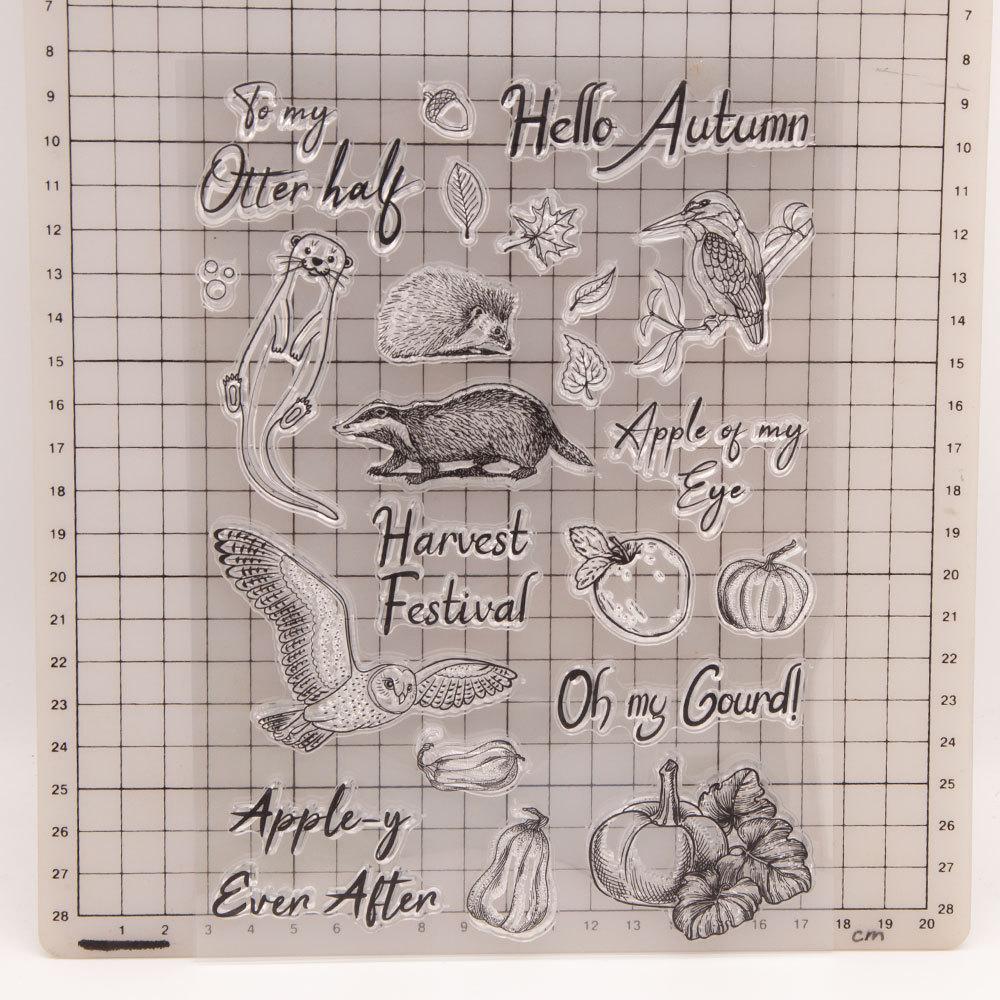 To my
Otter half
Hello Autumn
Apple of my
Eye
Harvest
Festival
Oh my Gourd!
Apple-y
Ever After
7
8
9
10
11
12
13
14
15
16
17
18
19
20
21
22
23
24
25
26
27
28
7
8
9
10
11
12
13
14
15
16
17
18
19
20
21
22
23
24
25
26
27
28
1 2 3 4 5 6 7 8 9 12 13 16 17 18 19 20
cm